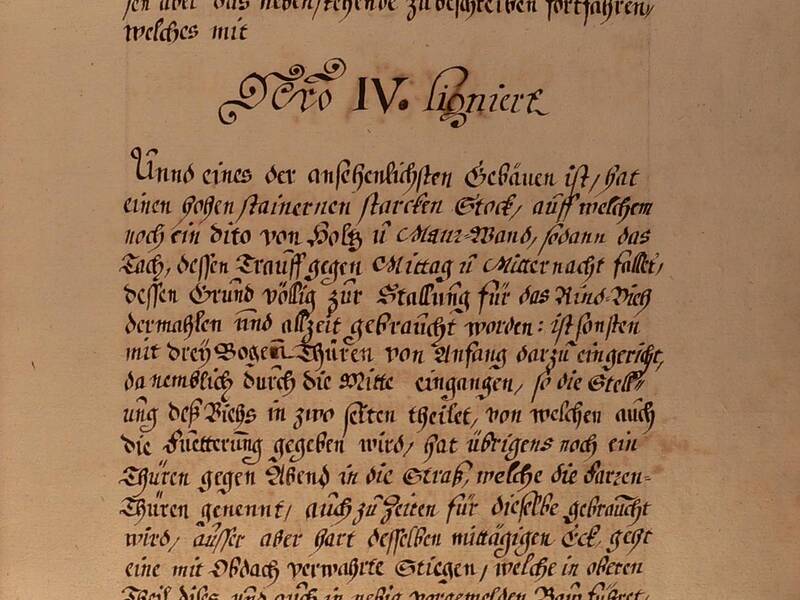 sen aber das nebenstehende zu beschreiben fortfahren,
welches mit
Nero IV. Ligniert
Unnd eines der ansehenlichsten Gebäuen ist, hat
einen hohen stainernen starcken Stock, auff welchem
noch ein dito von Holtz ũ Maur-Wand, sodann das
Tach, dessen Trauff gegen Mittag ũ Mitternacht fallet,
dessen Grund völlig zur Stallung für das Rind-Vieh
dermahlen unnd allzeit gebraucht worden: ist sonsten
mit drey Bogen Thüren von Anfang darzu eingericht,
da nemblich durch die Mitte eingangen, so die Stell-
ung deß Viehs in zwo seiten theilet, von welchen auch
die Fuetterung gegeben wird, hat übrigens noch ein
Thüren gegen Abend in die Straß, welche die Farzen-
Thüren genennt, auch zu Zeiten für dieselbe gebraucht
wird, äusser aber hart desselben mittägigen Eck, geht
eine mit Obdach verwahrte Stiegen, welche in oberen
Theil dises und auch in nebig vorgemelden Baw führet,